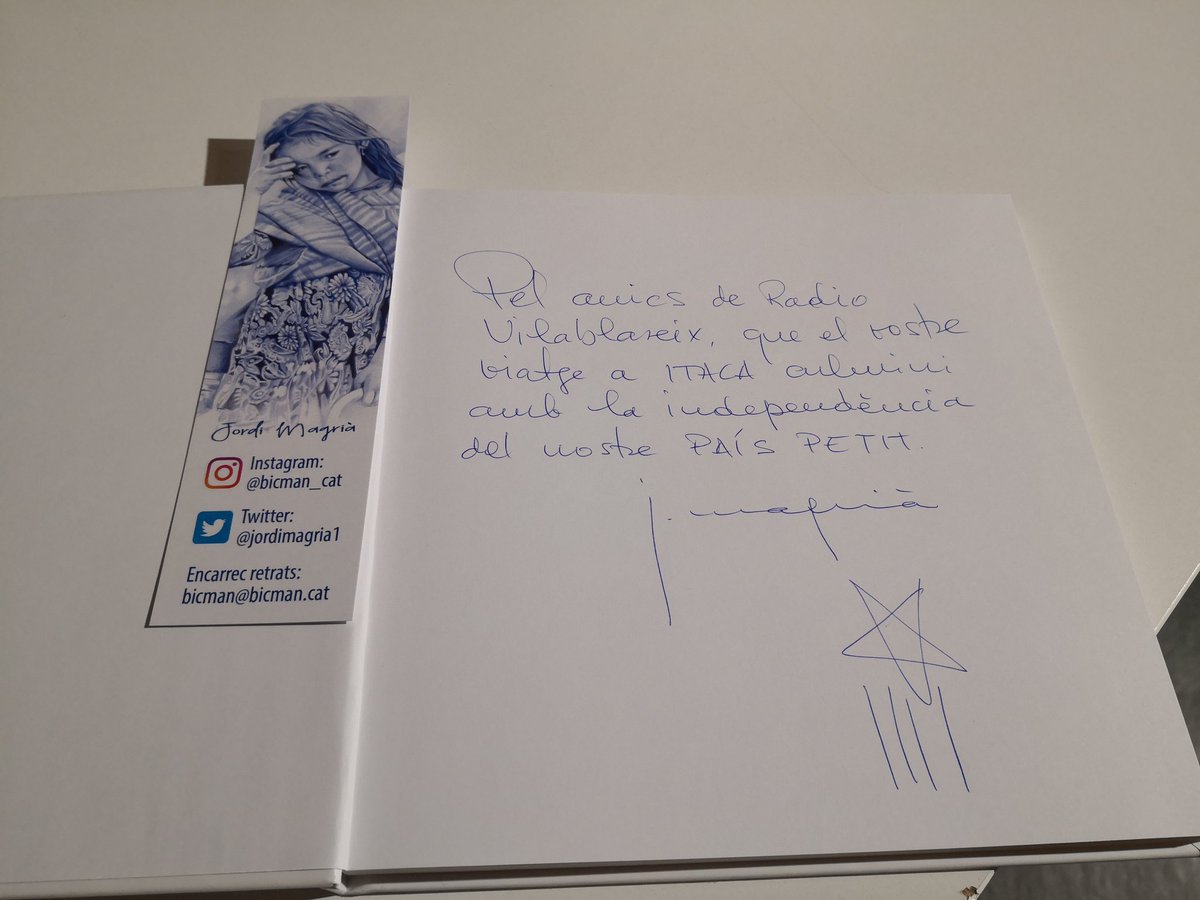 Jordi Magrià
Instagram:
@bicman_cat
Twitter:
@jordimagria1
Encarrec retrats:
bicman@bicman.cat
Pel amics de Radio
Vilablareix, que el vostre
viatge a ITACA culmini
amb la independència
del nostre PAÍS PETIT.
j. magrià